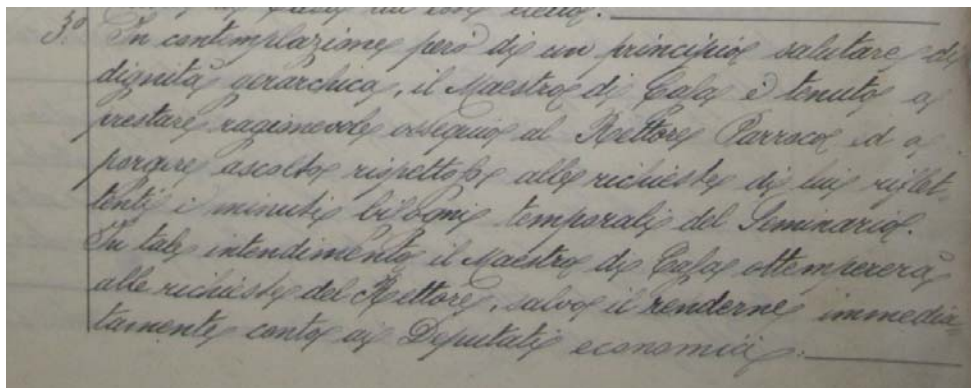 3º In contemplazione però di un principio salutare di
dignità gerarchica, il Maestro di Casa è tenuto a
prestare ragionevole ossequio al Rettore Parroco ed a
porgere ascolto rispettoso alle richieste di lui riflet-
tenti i minuti bisogni temporali del Seminario.
In tale intendimento il Maestro di Casa ottempererà
alle richieste del Rettore, salvo il renderne immedia-
tamente conto ai Deputati economici.